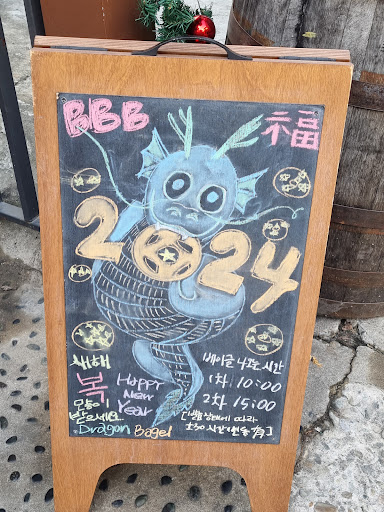 BBB
福
2024
새해
복
많이
받으세요
Happy
New
Year
Dragon Bagel
베이글 나오는 시간
1차 10:00
2차 15:00
[빵 상태에 따라
오픈 시간변동 有]